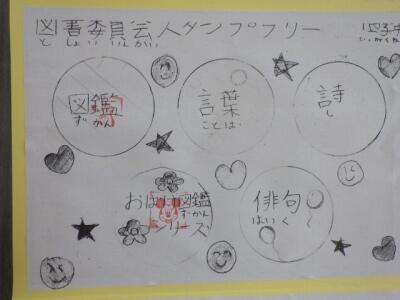 図書委員会スタンプラリー
としょいいんかい
図鑑
ずかん
言葉
ことば
詩
し
おばけ図鑑
ずかん
シリーズ
俳句
はいく